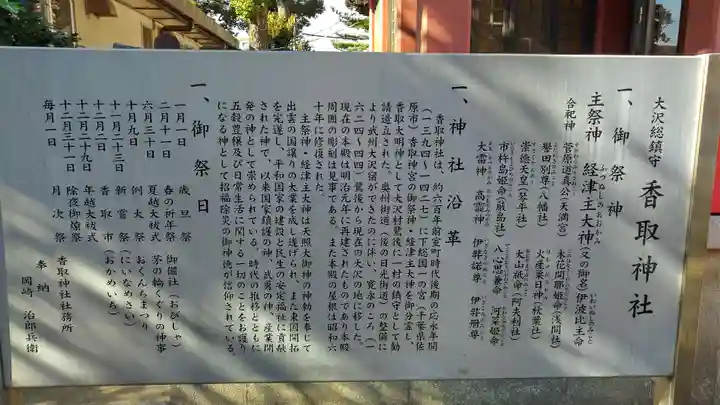 大沢総鎮守
香取神社
一、御祭神
主祭神 経津主大神(又の御名)伊波比主命
ふつぬしのおおかみ
いわいぬしのみこと
合祀神
菅原道真公(天満宮)
木花咲耶姫命(浅間社)
誉田別尊(八幡社)
火産霊日神(秋葉社)
崇徳天皇(琴平社)
大山祇命(阿夫利社)
市杵島姫命(厳島社)
八心思兼命
河菜姫命
大雷神
高靇神
伊弉諾尊
伊弉册尊
一、神社沿革
香取神社は、約六百年前室町時代後期の応永年間
(一三九四〜一四二七)に下総国一の宮(千葉県佐
原市)香取神宮の御祭神・経津主大神を御分霊し、
香取大明神として大沢村鷺後に一村の鎮守として勧
請造立された。奥州街道(後の日光街道)の整備に
より武州大沢宿ができたのに伴い、寛永のころ(一
六二四〜四四)鷺後から現在の大沢の地に移した。
現在の本殿は明治元年に再建されたものであり本殿
周囲の彫刻は見事である。また本殿の屋根は昭和六
十年に修復された。
主祭神・経津主大神は天照大御神の神勅を奉じて
出雲の国譲りの大業を成し遂げられ、また東国開拓
を完遂し、平和国家の建設と民生の安定福祉に貢献
された神で、以来国家鎮護の神、武勇の神、産業開
発の神として崇められている。時代の推移とともに
五穀豊穣及び日常生活に関する一切のことをお護り
になる神として招福除災の御神徳が信仰されている。
一、御祭日
一月一日 歳旦祭
二月十一日 春の祈年祭 御備社(おびしゃ)
六月三十日 夏越大祓式 茅の輪くぐりの神事
十月九日 例大祭 (おくんちまつり)
十一月二十三日 新嘗祭 (にいなめさい)
十二月二日 香取市 (おかめいち)
十二月二十九日 年越大祓式
十二月三十一日 除夜御燎祭
毎月一日 月次祭
香取神社社務所
奉納 岡崎治郎兵衛